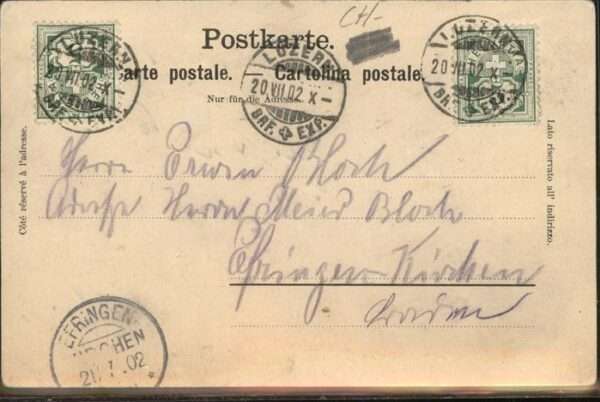 CH-
Postkarte.
Carte postale. Cartolina postale.
Nur für die Adresse.
LUZERN
20.VII.02 X
BRF. EXP.
LUZERN
20.VII.02 X
BRF. EXP.
LUZERN
20.VII.02 X
BRF. EXP.
Côté réservé à l'adresse.
Lato riservato all' indirizzo.
Herrn Erwin Bloch
Adresse Herrn Meier Bloch
Efringen-Kirchen
Baden
EFRINGEN
KIRCHEN
21. 02